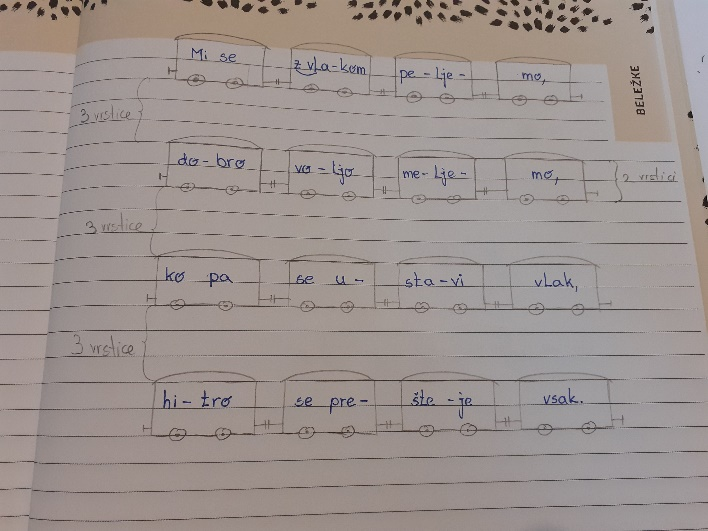 BELEŽKE
Mi se z vla-kom pe-lje- mo,
3 vrstice
do-bro vo-ljo me-lje- mo,
2 vrstici
3 vrstice
ko pa se u- sta-vi vlak,
3 vrstice
hi-tro se pre- šte-je vsak.